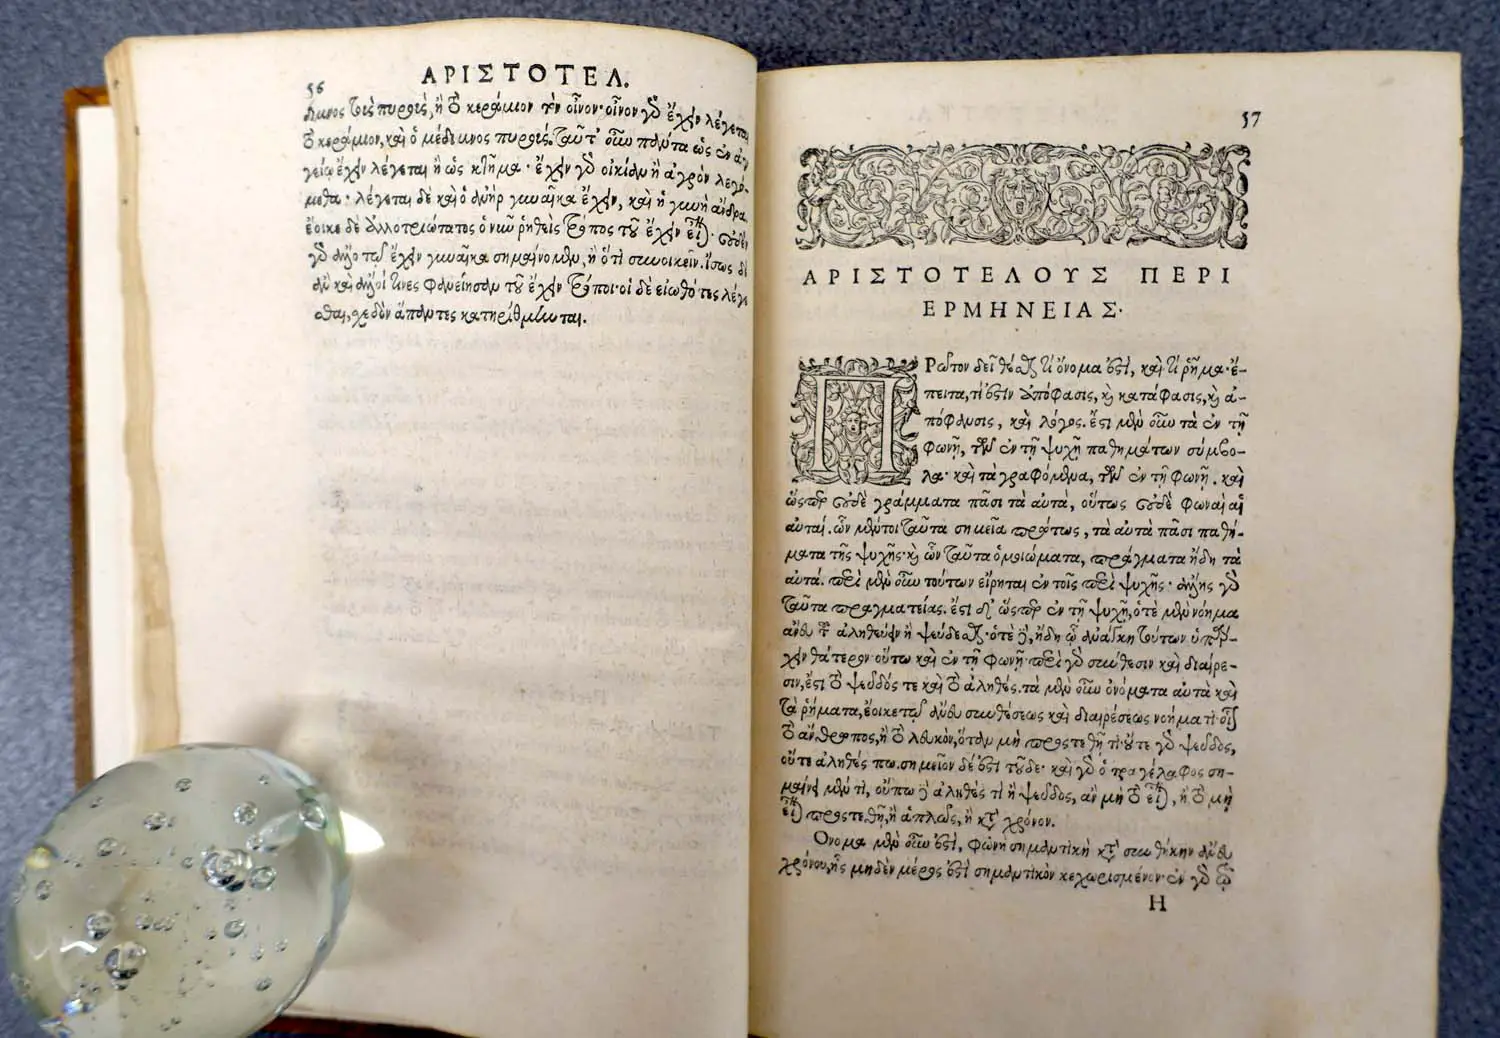 56
ΑΡΙΣΤΟΤΕΛ.
διμνος τοὺς πυροὺς, ἢ τὸ κεράμιον τὸν οἶνον· οἶνον γὰρ ἔχειν λέγεται
τὸ κεράμιον, καὶ ὁ μέδιμνος πυροὺς. ταῦτ' οὖν πάντα ὡς ἐν ἀγ-
γείῳ ἔχειν λέγεται, ἢ ὡς κτῆμα· ἔχειν γὰρ οἰκίαν ἢ ἀγρὸν λεγό-
μεθα. λέγεται δὲ καὶ ὁ ἀνὴρ γυναῖκα ἔχειν, καὶ ἡ γυνὴ ἄνδρα.
ἔοικε δὲ ἀλλοτριώτατος ὁ νῦν ῥηθεὶς τρόπος τοῦ ἔχειν εἶναι· οὐδὲν
γὰρ ἄλλο τῷ ἔχειν γυναῖκα σημαίνομεν, ἢ ὅτι συνοικεῖν. ἴσως δ'
ἂν καὶ ἄλλοι τινες φανείησαν τοῦ ἔχειν τρόποι· οἱ δὲ εἰωθότες λέγε-
σθαι, σχεδὸν ἅπαντες κατηρίθμηνται.
57
ΑΡΙΣΤΟΤΕΛΟΥΣ ΠΕΡΙ
ΕΡΜΗΝΕΙΑΣ.
ΠΡῶτον δεῖ θέσθαι τί ὄνομα ἐστὶ, καὶ τί ῥῆμα· ἔ-
πειτα, τί ἐστιν ἀπόφασις, καὶ κατάφασις, καὶ ἀ-
πόφανσις, καὶ λόγος. ἔστι μὲν οὖν τὰ ἐν τῇ
φωνῇ, τῶν ἐν τῇ ψυχῇ παθημάτων σύμβο-
λα· καὶ τὰ γραφόμενα, τῶν ἐν τῇ φωνῇ. καὶ
ὥσπερ οὐδὲ γράμματα πᾶσι τὰ αὐτὰ, οὕτως οὐδὲ φωναὶ αἱ
αὐταί. ὧν μέντοι ταῦτα σημεῖα πρώτως, τὰ αὐτὰ πᾶσι παθή-
ματα τῆς ψυχῆς· καὶ ὧν ταῦτα ὁμοιώματα, πράγματα ἤδη τὰ
αὐτά. περὶ μὲν οὖν τούτων εἴρηται ἐν τοῖς περὶ ψυχῆς· ἄλλης γὰρ
ταῦτα πραγματείας. ἔστι δ' ὥσπερ ἐν τῇ ψυχῇ, ὁτὲ μὲν νόημα
ἄνευ τοῦ ἀληθεύειν ἢ ψεύδεσθαι· ὁτὲ δὲ, ἤδη ᾧ ἀνάγκη τούτων ὑπάρ-
χειν θάτερον· οὕτω καὶ ἐν τῇ φωνῇ· περὶ γὰρ σύνθεσιν καὶ διαίρε-
σιν, ἔστι τὸ ψεῦδός τε καὶ τὸ ἀληθές. τὰ μὲν οὖν ὀνόματα αὐτὰ καὶ
τὰ ῥήματα, ἔοικε τῷ ἄνευ συνθέσεως καὶ διαιρέσεως νοήματι· οἷον
τὸ ἄνθρωπος, ἢ τὸ λευκὸν, ὅταν μὴ προστεθῇ τι· οὔτε γὰρ ψεῦδος,
οὔτε ἀληθές πω. σημεῖον δέ ἐστι τοῦδε· καὶ γὰρ ὁ τραγέλαφος ση-
μαίνει μέν τι, οὔπω δὲ ἀληθές τι ἢ ψεῦδος, ἂν μὴ τὸ εἶναι, ἢ τὸ μὴ
εἶναι προστεθῇ, ἢ ἁπλῶς, ἢ κατὰ χρόνον.
Ονομα μὲν οὖν ἐστὶ, φωνὴ σημαντικὴ κατὰ συνθήκην ἄνευ
χρόνου, ἧς μηδὲν μέρος ἐστὶ σημαντικὸν κεχωρισμένον· ἐν γὰρ τῷ
Η